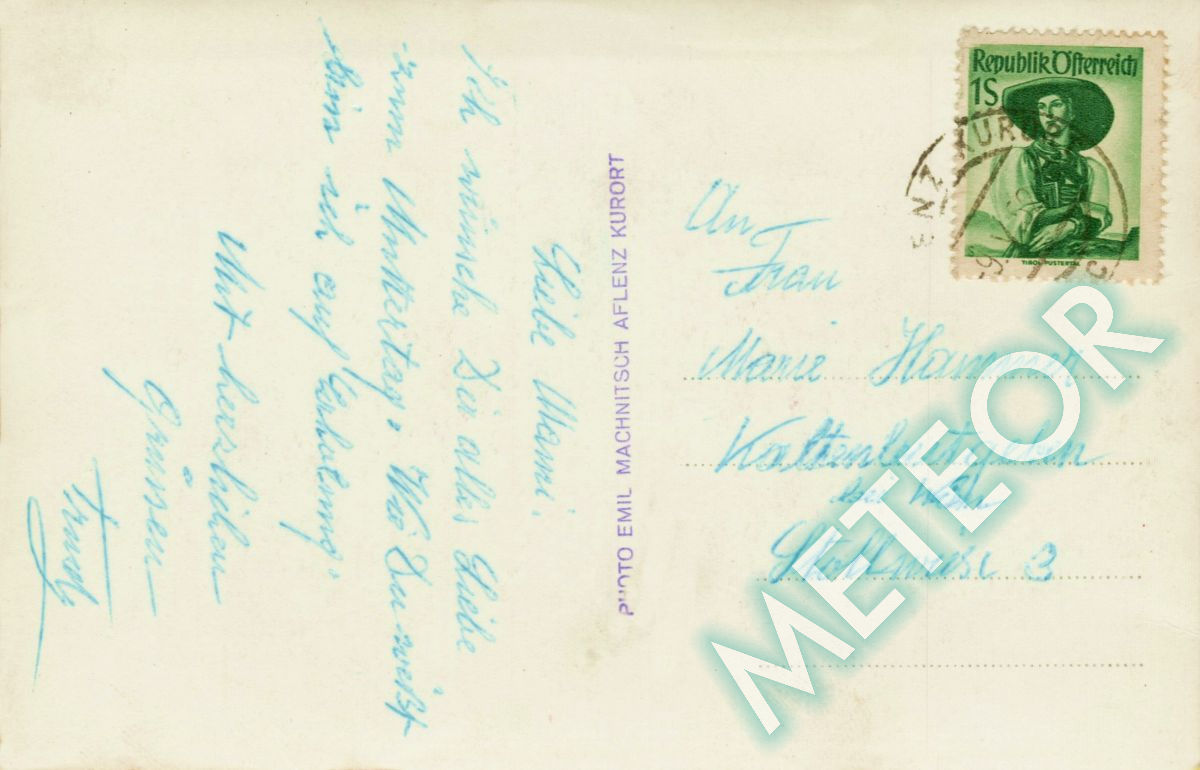 Liebe Mami,
Ich wünsche Dir alles Liebe
zum Muttertag. Wie Du weißt
bin ich auf Erholung.
Mit herzlichen
Grüssen
Trude
PHOTO EMIL MACHNITSCH AFLENZ KURORT
Republik Österreich
1S
TIROL-PUSTERTAL
ENZ KURO
An
Frau
Marie Hammer
Kaltenleutgeben
bei Wien
3
METEOR